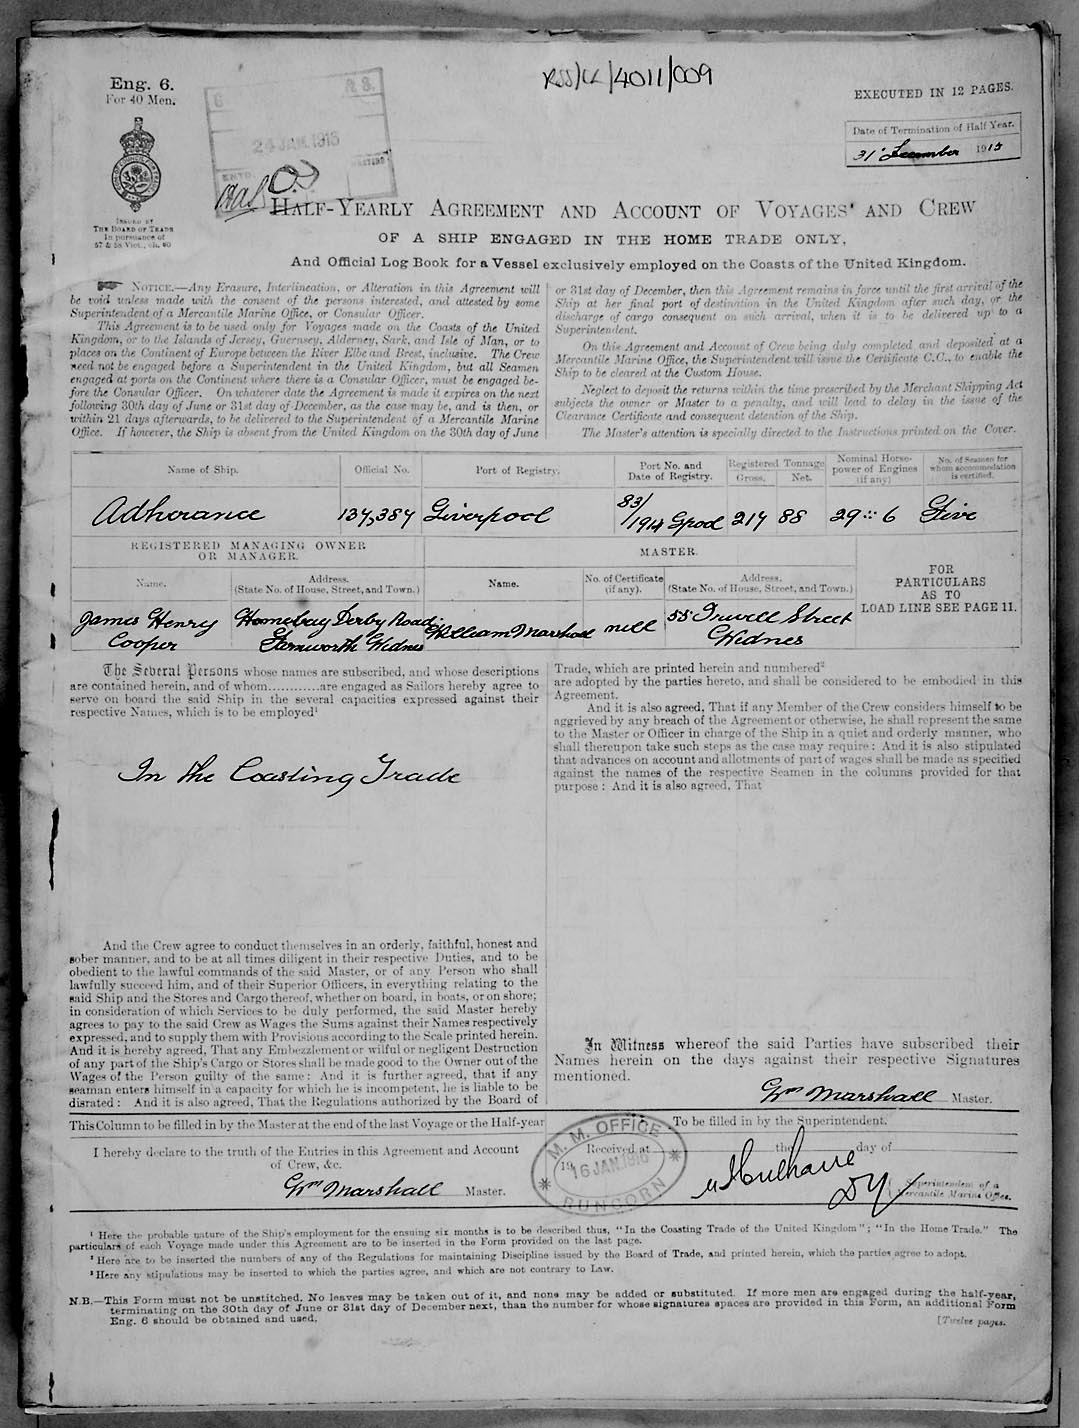 Eng. 6.
For 40 Men.
RSS/CL/4011/009
EXECUTED IN 12 PAGES.
Date of Termination of Half Year.
31st December 1915
24 JAN. 1916
ISSUED BY
THE BOARD OF TRADE
In pursuance of
57 & 58 Vict., ch. 60
HALF-YEARLY AGREEMENT AND ACCOUNT OF VOYAGES AND CREW
OF A SHIP ENGAGED IN THE HOME TRADE ONLY,
And Official Log Book for a Vessel exclusively employed on the Coasts of the United Kingdom.
NOTICE.—Any Erasure, Interlineation, or Alteration in this Agreement will
be void unless made with the consent of the persons interested, and attested by some
Superintendent of a Mercantile Marine Office, or Consular Officer.
This Agreement is to be used only for Voyages made on the Coasts of the United
Kingdom, or to the Islands of Jersey, Guernsey, Alderney, Sark, and Isle of Man, or to
places on the Continent of Europe between the River Elbe and Brest, inclusive. The Crew
need not be engaged before a Superintendent in the United Kingdom, but all Seamen
engaged at ports on the Continent where there is a Consular Officer, must be engaged be-
fore the Consular Officer. On whatever date the Agreement is made it expires on the next
following 30th day of June or 31st day of December, as the case may be, and is then, or
within 21 days afterwards, to be delivered to the Superintendent of a Mercantile Marine
Office. If however, the Ship is absent from the United Kingdom on the 30th day of June
or 31st day of December, then this Agreement remains in force until the first arrival of the
Ship at her final port of destination in the United Kingdom after such day, or the
discharge of cargo consequent on such arrival, when it is to be delivered up to a
Superintendent.
On this Agreement and Account of Crew being duly completed and deposited at a
Mercantile Marine Office, the Superintendent will issue the Certificate C.C., to enable the
Ship to be cleared at the Custom House.
Neglect to deposit the returns within the time prescribed by the Merchant Shipping Act
subjects the owner or Master to a penalty, and will lead to delay in the issue of the
Clearance Certificate and consequent detention of the Ship.
The Master's attention is specially directed to the Instructions printed on the Cover.
Name of Ship. Official No. Port of Registry. Port No. and Date of Registry. Registered Tonnage Gross. Net. Nominal Horse-power of Engines (if any) No. of Seamen for whom accommodation is certified.
Adherance 137,387 Liverpool 83/1914 Lpool 217 88 29 6 Five
REGISTERED MANAGING OWNER
OR MANAGER.
MASTER.
FOR
PARTICULARS
AS TO
LOAD LINE SEE PAGE 11.
Name. Address. (State No. of House, Street, and Town.) Name. No. of Certificate (if any). Address. (State No. of House, Street, and Town.)
James Henry Homebay Derby Road William Marshall nill 55 Irwell Street
Cooper Widnes Widnes
The Several Persons whose names are subscribed, and whose descriptions
are contained herein, and of whom............are engaged as Sailors hereby agree to
serve on board the said Ship in the several capacities expressed against their
respective Names, which is to be employed¹
In the Coasting Trade
And the Crew agree to conduct themselves in an orderly, faithful, honest and
sober manner, and to be at all times diligent in their respective Duties, and to be
obedient to the lawful commands of the said Master, or of any Person who shall
lawfully succeed him, and of their Superior Officers, in everything relating to the
said Ship and the Stores and Cargo thereof, whether on board, in boats, or on shore;
in consideration of which Services to be duly performed, the said Master hereby
agrees to pay to the said Crew as Wages the Sums against their Names respectively
expressed, and to supply them with Provisions according to the Scale printed herein.
And it is hereby agreed, That any Embezzlement or wilful or negligent Destruction
of any part of the Ship's Cargo or Stores shall be made good to the Owner out of the
Wages of the Person guilty of the same: And it is further agreed, that if any
seaman enters himself in a capacity for which he is incompetent, he is liable to be
disrated: And it is also agreed, That the Regulations authorized by the Board of
Trade, which are printed herein and numbered²
are adopted by the parties hereto, and shall be considered to be embodied in this
Agreement.
And it is also agreed, That if any Member of the Crew considers himself to be
aggrieved by any breach of the Agreement or otherwise, he shall represent the same
to the Master or Officer in charge of the Ship in a quiet and orderly manner, who
shall thereupon take such steps as the case may require: And it is also stipulated
that advances on account and allotments of part of wages shall be made as specified
against the names of the respective Seamen in the columns provided for that
purpose: And it is also agreed, That
In Witness whereof the said Parties have subscribed their
Names herein on the days against their respective Signatures
mentioned.
Wm Marshall Master.
This Column to be filled in by the Master at the end of the last Voyage or the Half-year
To be filled in by the Superintendent.
I hereby declare to the truth of the Entries in this Agreement and Account
of Crew, &c.
Wm Marshall Master.
Received at the day of
19
M. M. OFFICE
16 JAN. 1916
RUNCORN
Superintendent of a
Mercantile Marine Office.
¹ Here the probable nature of the Ship's employment for the ensuing six months is to be described thus, "In the Coasting Trade of the United Kingdom"; "In the Home Trade." The
particulars of each Voyage made under this Agreement are to be inserted in the Form provided on the last page.
² Here are to be inserted the numbers of any of the Regulations for maintaining Discipline issued by the Board of Trade, and printed herein, which the parties agree to adopt.
³ Here any stipulations may be inserted to which the parties agree, and which are not contrary to Law.
N.B.—This Form must not be unstitched. No leaves may be taken out of it, and none may be added or substituted. If more men are engaged during the half-year,
terminating on the 30th day of June or 31st day of December next, than the number for whose signatures spaces are provided in this Form, an additional Form
Eng. 6 should be obtained and used.
[Twelve pages.